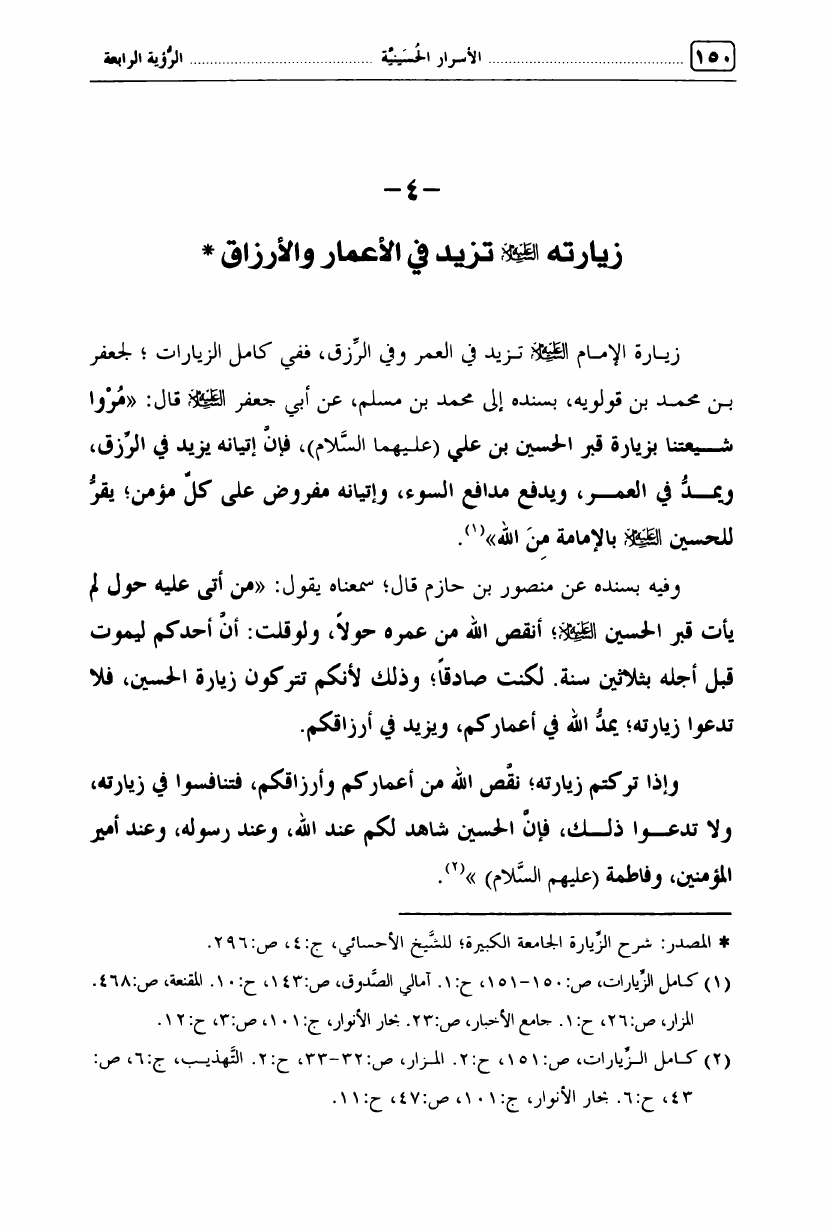 ١٥٠ ................ الأسرار الحُسَينيَّة ................ الرُّؤية الرابعة
-٤-
زيارته عليه السلام تزيد في الأعمار والأرزاق *
زيـارة الإمـام عليه السلام تـزيد في العمر وفي الرِّزق، ففي كامل الزيارات ؛ لجعفر
بـن محمـد بن قولويه، بسنده إلى محمد بن مسلم، عن أبي جعفر عليه السلام قال: «مُرْوا
شـــيعتنا بزيارة قبر الحسين بن علي (علـيهما السَّلام)، فإنَّ إتيانه يزيد في الرِّزق،
ويمـــدُّ في العمـــر، ويدفع مدافع السوء، وإتيانه مفروض على كلّ مؤمن؛ يقرُّ
للحسين عليه السلام بالإمامة مِنَ الله»(١).
وفيه بسنده عن منصور بن حازم قال؛ سمعناه يقول: «من أتى عليه حول لم
يأت قبر الحسين عليه السلام؛ أنقص الله من عمره حولاً، ولوقلت: أنَّ أحدكم ليموت
قبل أجله بثلاثين سنة. لكنت صادقاً؛ وذلك لأنكم تتركون زيارة الحسين، فلا
تدعوا زيارته؛ يمدُّ الله في أعماركم، ويزيد في أرزاقكم.
وإذا تركتم زيارته؛ نقُص الله من أعماركم وأرزاقكم، فتنافسوا في زيارته،
ولا تدعـــوا ذلـــك، فإنَّ الحسين شاهد لكم عند الله، وعند رسوله، وعند أمير
المؤمنين، وفاطمة (عليهم السَّلام) »(٢).
* المصدر: شرح الزِّيارة الجامعة الكبيرة؛ للشَّيخ الأحسائي، ج:٤، ص:٢٩٦.
(١) كـامل الزِّيارات، ص:١٥٠-١٥١، ح:١. آمالي الصَّدوق، ص:١٤٣، ح:١٠. المقنعة، ص:٤٦٨.
المزار، ص:٢٦، ح:١. جامع الأخبار، ص:٢٣. بحار الأنوار، ج:١٠١، ص:٣، ح:١٢.
(٢) كـامل الـزِّيارات، ص:١٥١، ح:٢. المـزار، ص:٣٢-٣٣، ح:٢. التَّهذيـب، ج:٦، ص:
٤٣، ح:٦. بحار الأنوار، ج:١٠١، ص:٤٧، ح:١١.